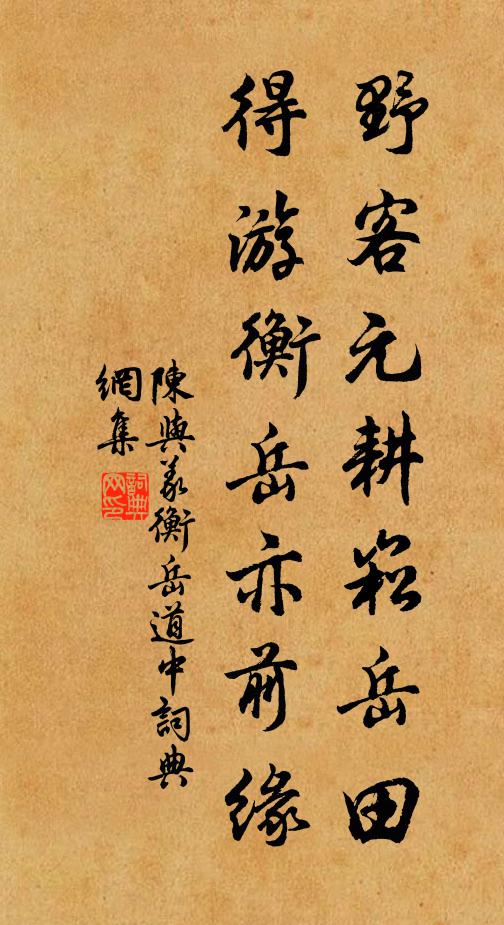 野客元耕崧岳田
得游衡岳亦前緣
陳與義衡岳道中詞典
網集
詞典
网印